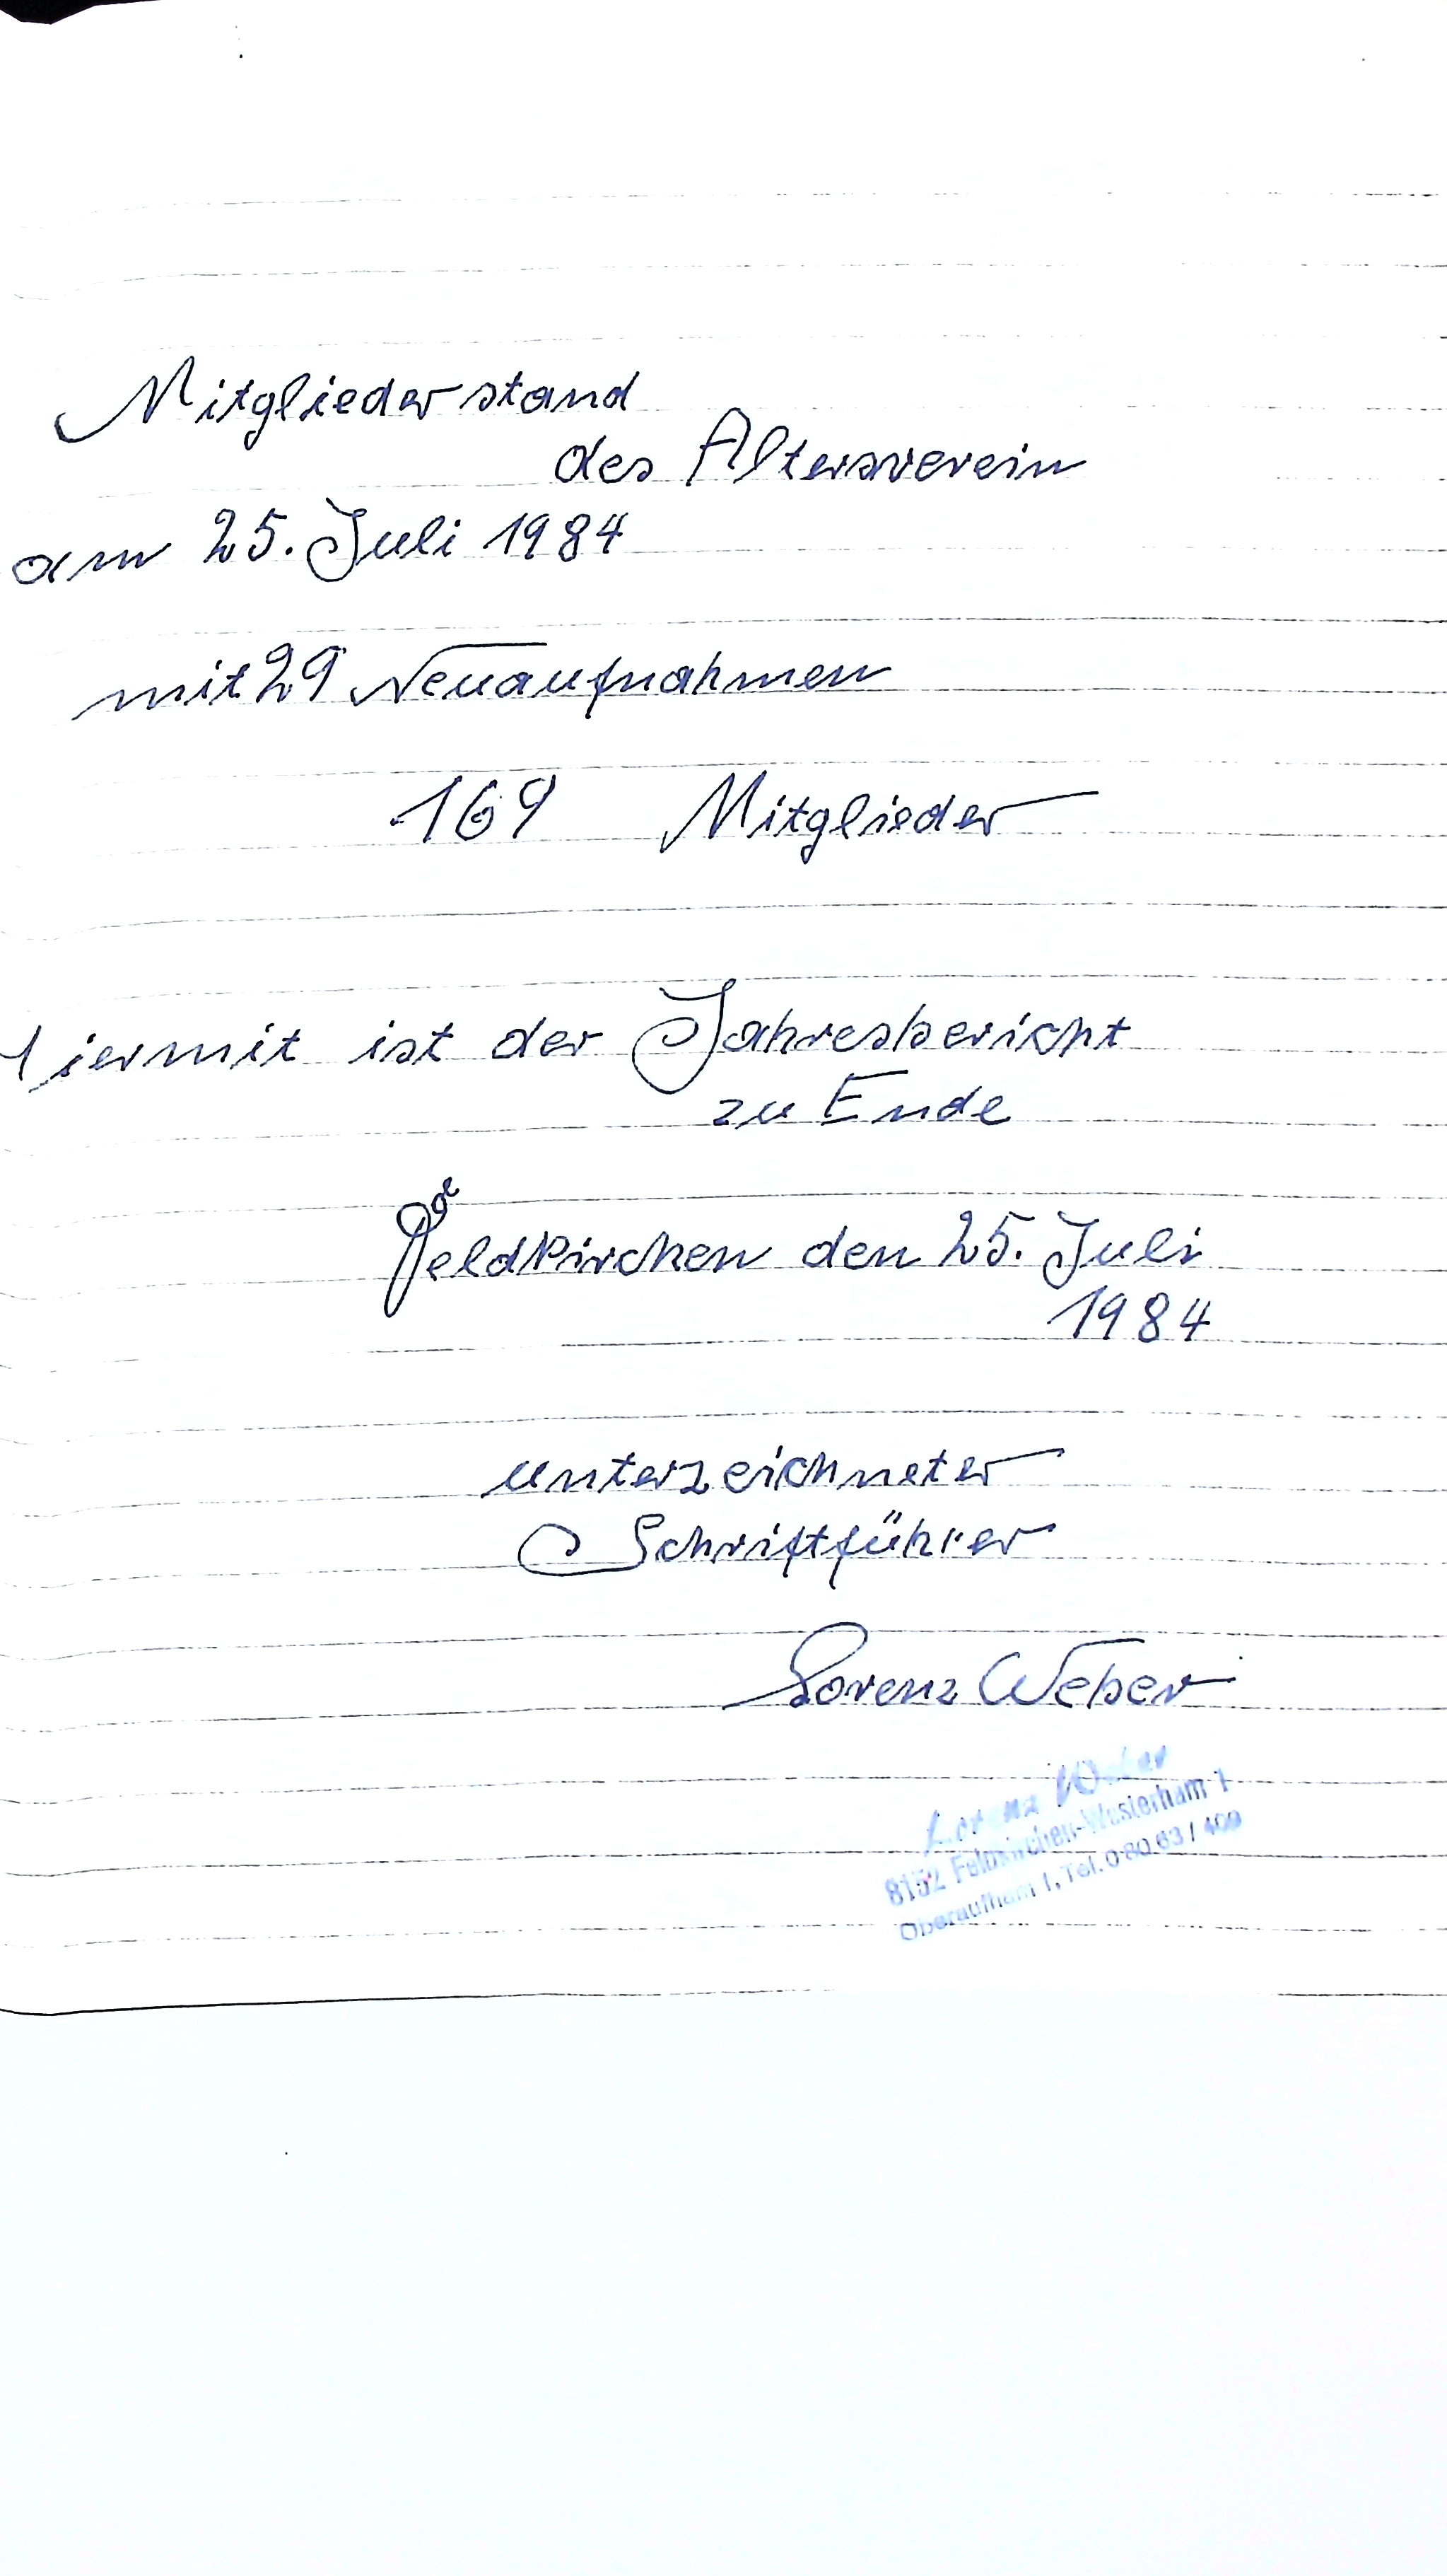 Mitgliederstand
des Altersverein
am 25. Juli 1984
mit 29 Neuaufnahmen
169 Mitglieder
Hiermit ist der Jahresbericht
zu Ende
Feldkirchen den 25. Juli
1984
unterzeichneter
Schriftführer
Lorenz Weber
Lorenz Weber
8152 Feldkirchen-Westerham 1
Oberaufham 1, Tel. 0 80 63 / 409